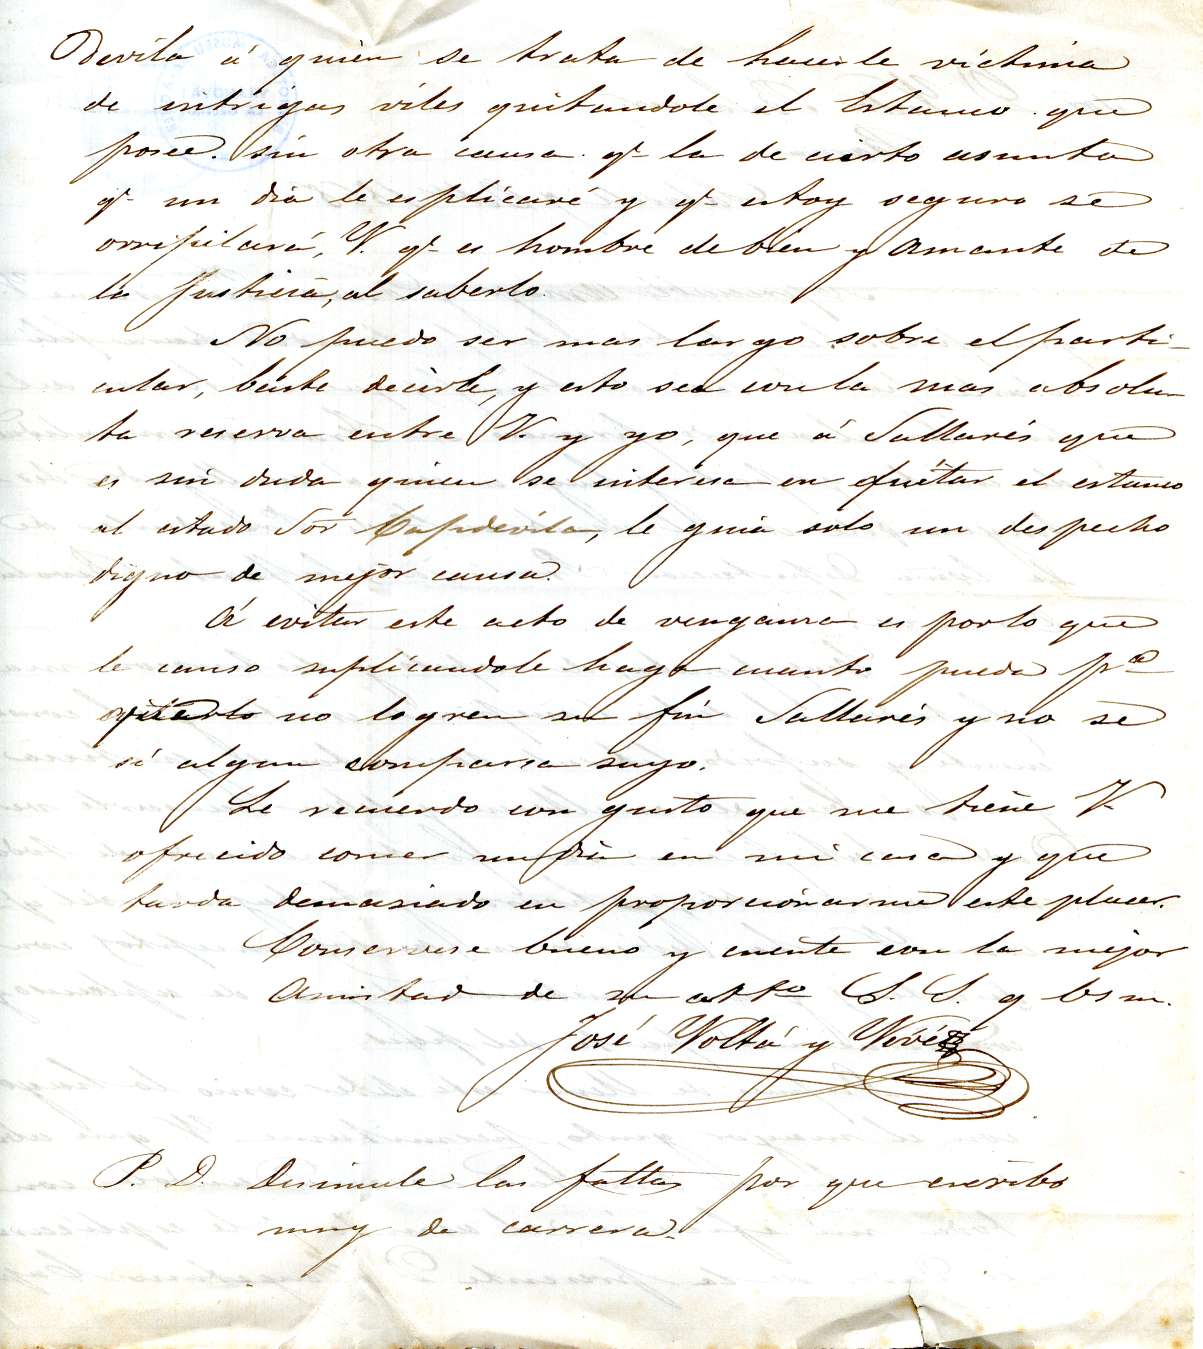 Devila á quien se trata de hacerle víctima
de intrigas viles quitandole el Estanco que
posee. sin otra causa. qᵉ la de cierto asunto
qᵉ un dia le esplicaré y qᵉ estoy seguro se
orripilará, V. qᵉ es hombre de bien y amante de
la Justicia, al saberlo.
No puedo ser mas largo sobre el parti-
cular, baste decirle, y esto sea con la mas absolu-
ta reserva entre V. y yo, que á Sallarés que
es sin duda quien se interesa en quitar el estanco
al citado Sor Capdevila, le guia solo un despecho
digno de mejor causa.
Á evitar este acto de venganza es por lo que
le canso suplicandole haga cuanto pueda pᵃ
no logren su fin Sallarés y no se
si algun comparsa suyo.
Le recuerdo con gusto que me tiene V.
ofrecido comer un dia en mi casa y que
tarda demasiado en proporcionarme este placer.
Conservese bueno y cuente con la mejor
Amistad de su attᵒ S. S. q bs m.
José Voltá y Vivé
P. D. Disimule las faltas por que escribo
muy de carrera.